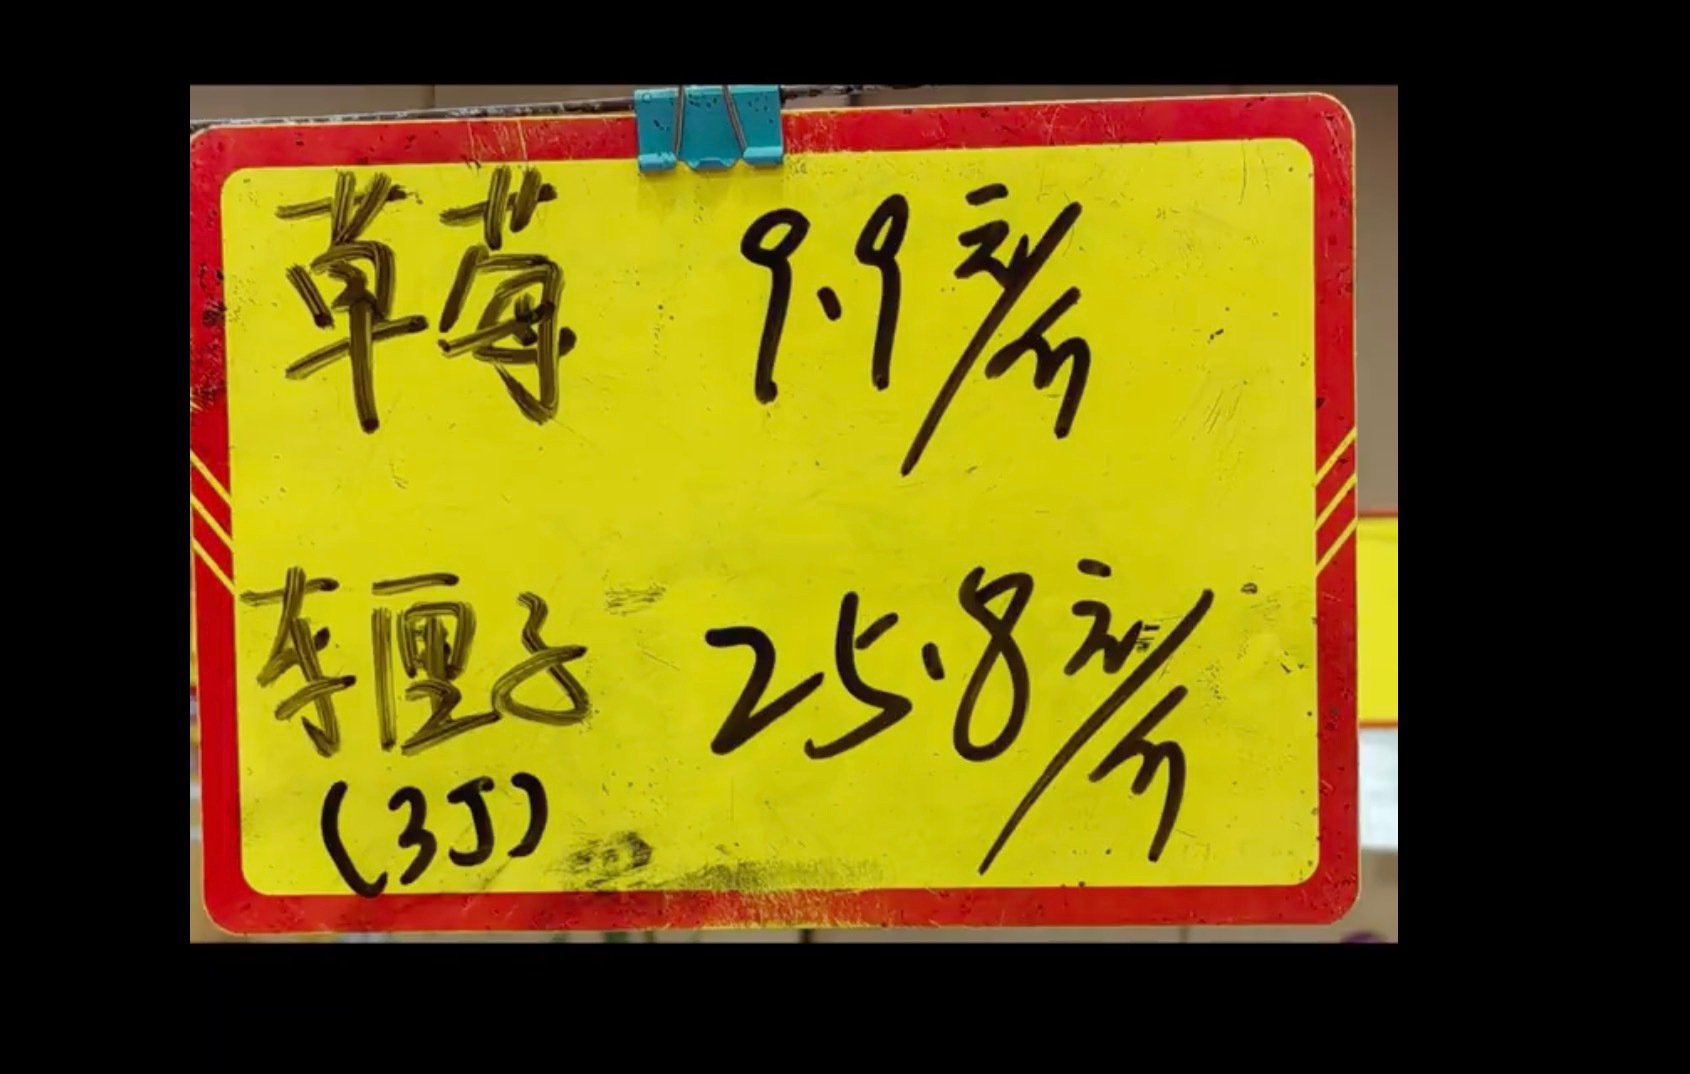 草莓 9.9元/斤
车厘子 25.8元/斤
(3J)